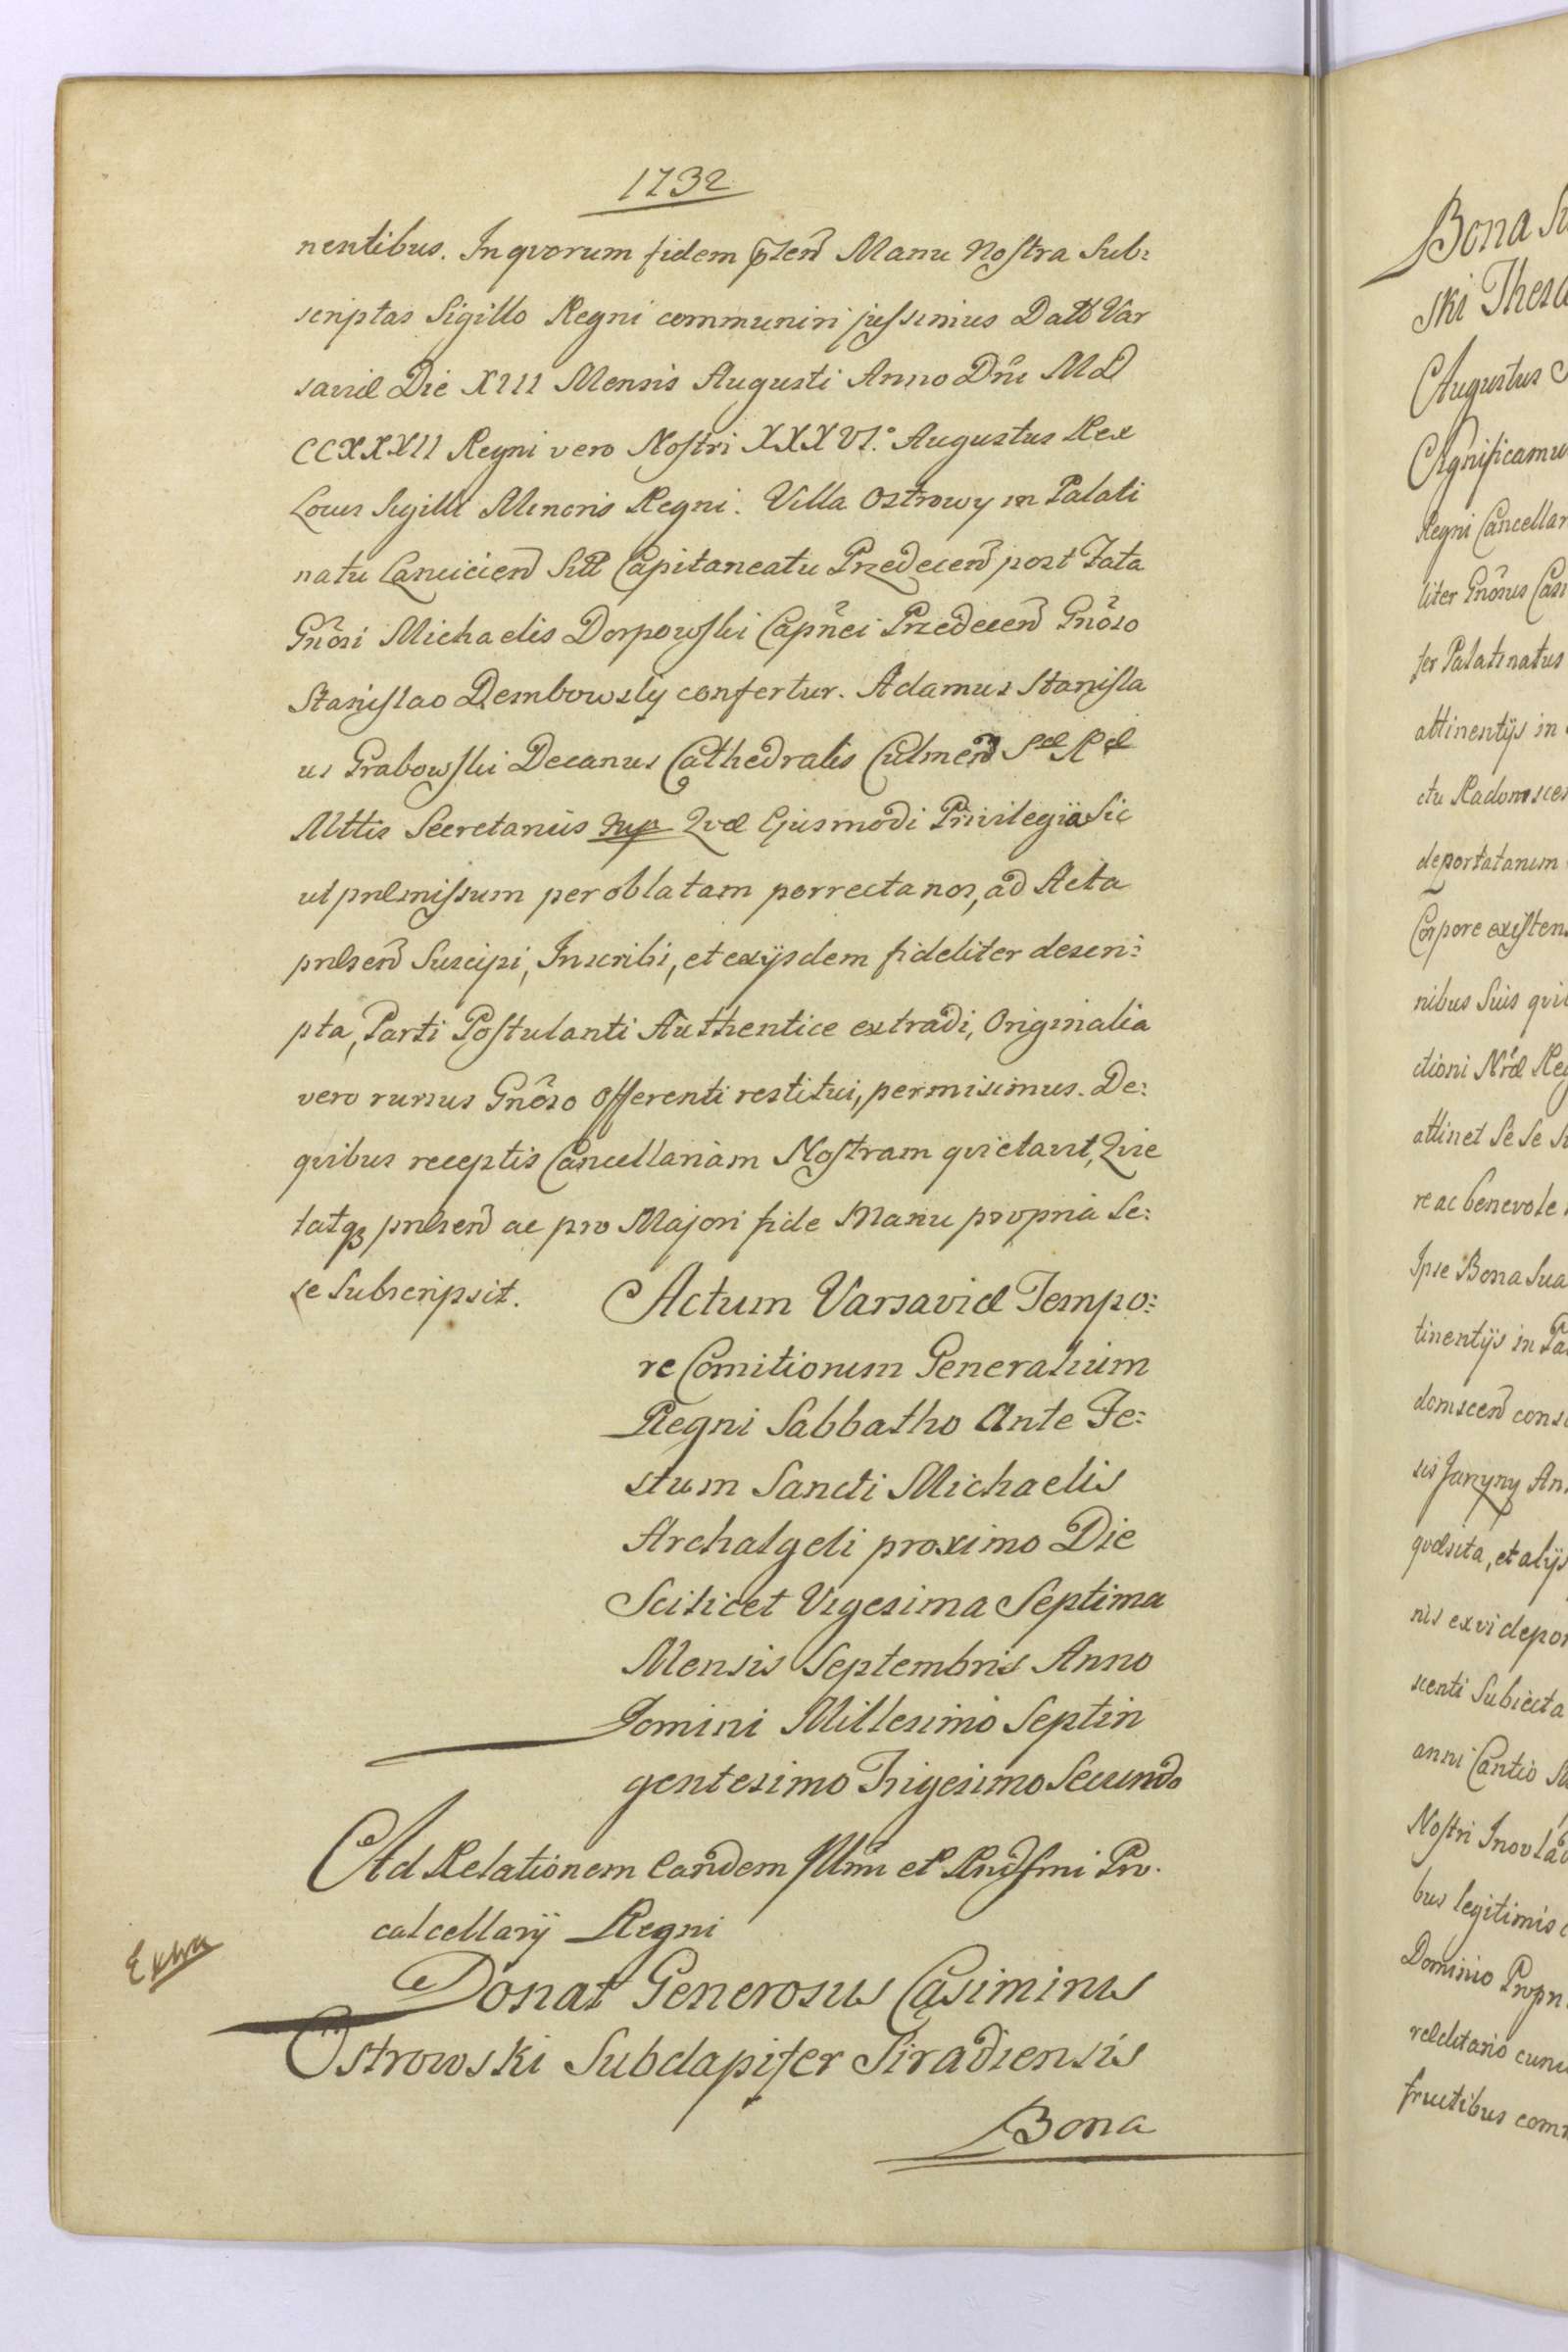 1732
nentibus. In qvorum fidem pſten̄ Manu Noſtra Sub:
scriptas Sigillo Regni communiri juſsimus Datt Var
saviæ Die XIII Mensis Augusti Anno Dn̄i MD
CCXXXII Regni vero Noſtri XXXVI.° Augustus Rex
Locus Sigilli Minoris Regni. Villa Ostrowy in Palati
natu Lancicien̄ Sitt Capitaneatu Przedecen̄ post Fata
Gn̄osi Michaelis Dorpowſki Capn̄ei Przedecen̄ Gn̄oso
Stanislao Dembowsky confertur. Adamus Staniſla
us Grabowſki Decanus Cathedralis Culmen̄ Sæ Ræ
Mttis Secretarius mp Qvæ Ejusmodi Privilegia Sic
ut præmiſsum per oblatam porrecta nos, ad Acta
præsen̄ Suscipi, Inscribi, et ex ijsdem fideliter descri:
pta, Parti Poſtulanti Authentice extradi, Originalia
vero rursus Gn̄oso Offerenti restitui, permisimus. De:
qvibus receptis Cancellariam Noſtram qvietavit, Qvie
tatqz præsen̄ ac pro Majori fide Manu propria Se:
se Subscripsit.
Actum Varsaviæ Tempo:
re Comitiorum Generalium
Regni Sabbatho Ante Fe:
stum Sancti Michaelis
Archalgeli proximo Die
Scilicet Vigesima Septima
Mensis Septembris Anno
Domini Millesimo Septin
gentesimo Trigesimo Secundo
Ad Relationem Eandem Illm̄i et Rndſmi Pro.
calcellarij Regni
Extra
Donat Generosus Casimirus
Ostrowski Subdapifer Siradiensis
Bona
Bona
ski
Augustus
Significamu
Regni Cancellar
liter Gn̄osus
fer Palatinatus
attinentijs in
ctu
deportatarum
Corpore exiſten
nibus Suis
ctioni Nr̄æ
attinet Se Se
re ac benevole
Ipse Bona Sua
tinentijs in
domscen̄
An
qvæsita, et alijs
nis ex vi
scenti Subiecta
anni
Noſtri
bus legitimis
Dominio
cum
fructibus